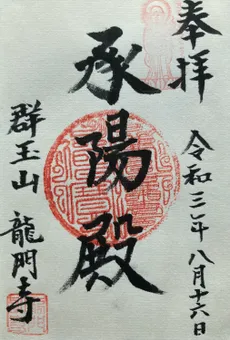 奉拝
令和三年八月十六日
承陽殿
群玉山 龍門寺